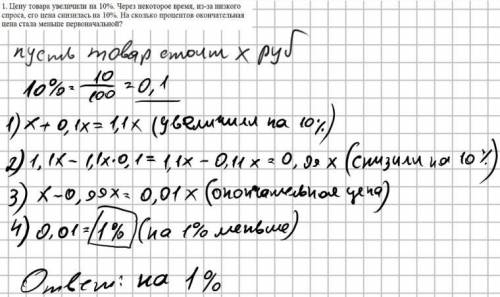 1. Цену товара увеличили на 10%. Через некоторое время, из-за низкого
спроса, его цена снизилась на 10%. На сколько процентов окончательная
цена стала меньше первоначальной?
пусть товар стоит x руб
10% = 10/100 = 0,1
1) x + 0,1x = 1,1x (увеличили на 10%)
2) 1,1x - 1,1x·0,1 = 1,1x - 0,11x = 0,99x (снизили на 10%)
3) x - 0,99x = 0,01x (окончательная цена)
4) 0,01 = 1% (на 1% меньше)
Ответ: на 1%